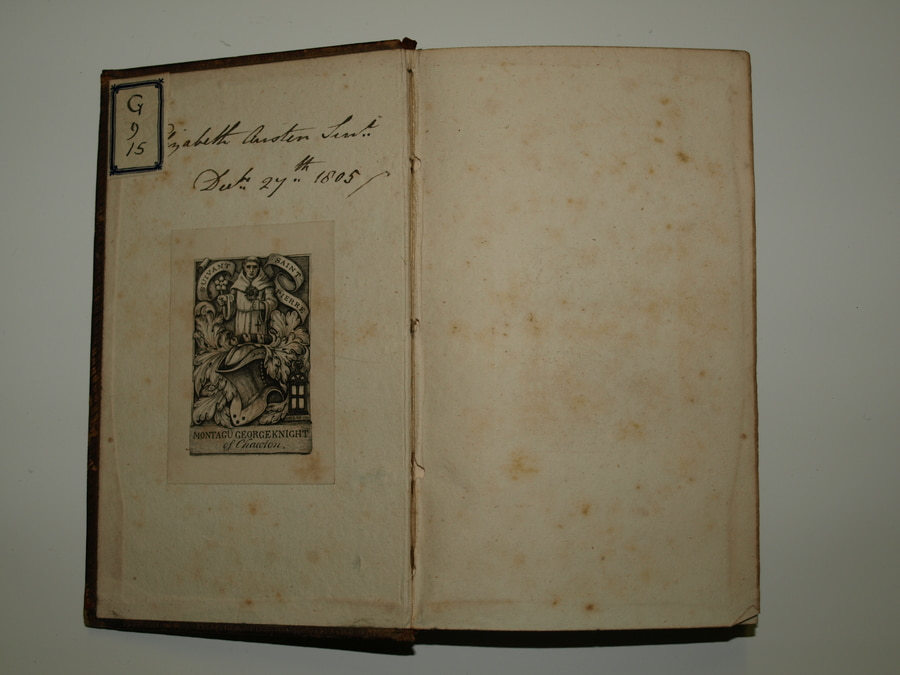 G
9
15
Elizabeth Austen Senr.
Decr. 27th. 1805
SUIVANT SAINT PIERRE
MONTAGU GEORGE KNIGHT
of Chawton.